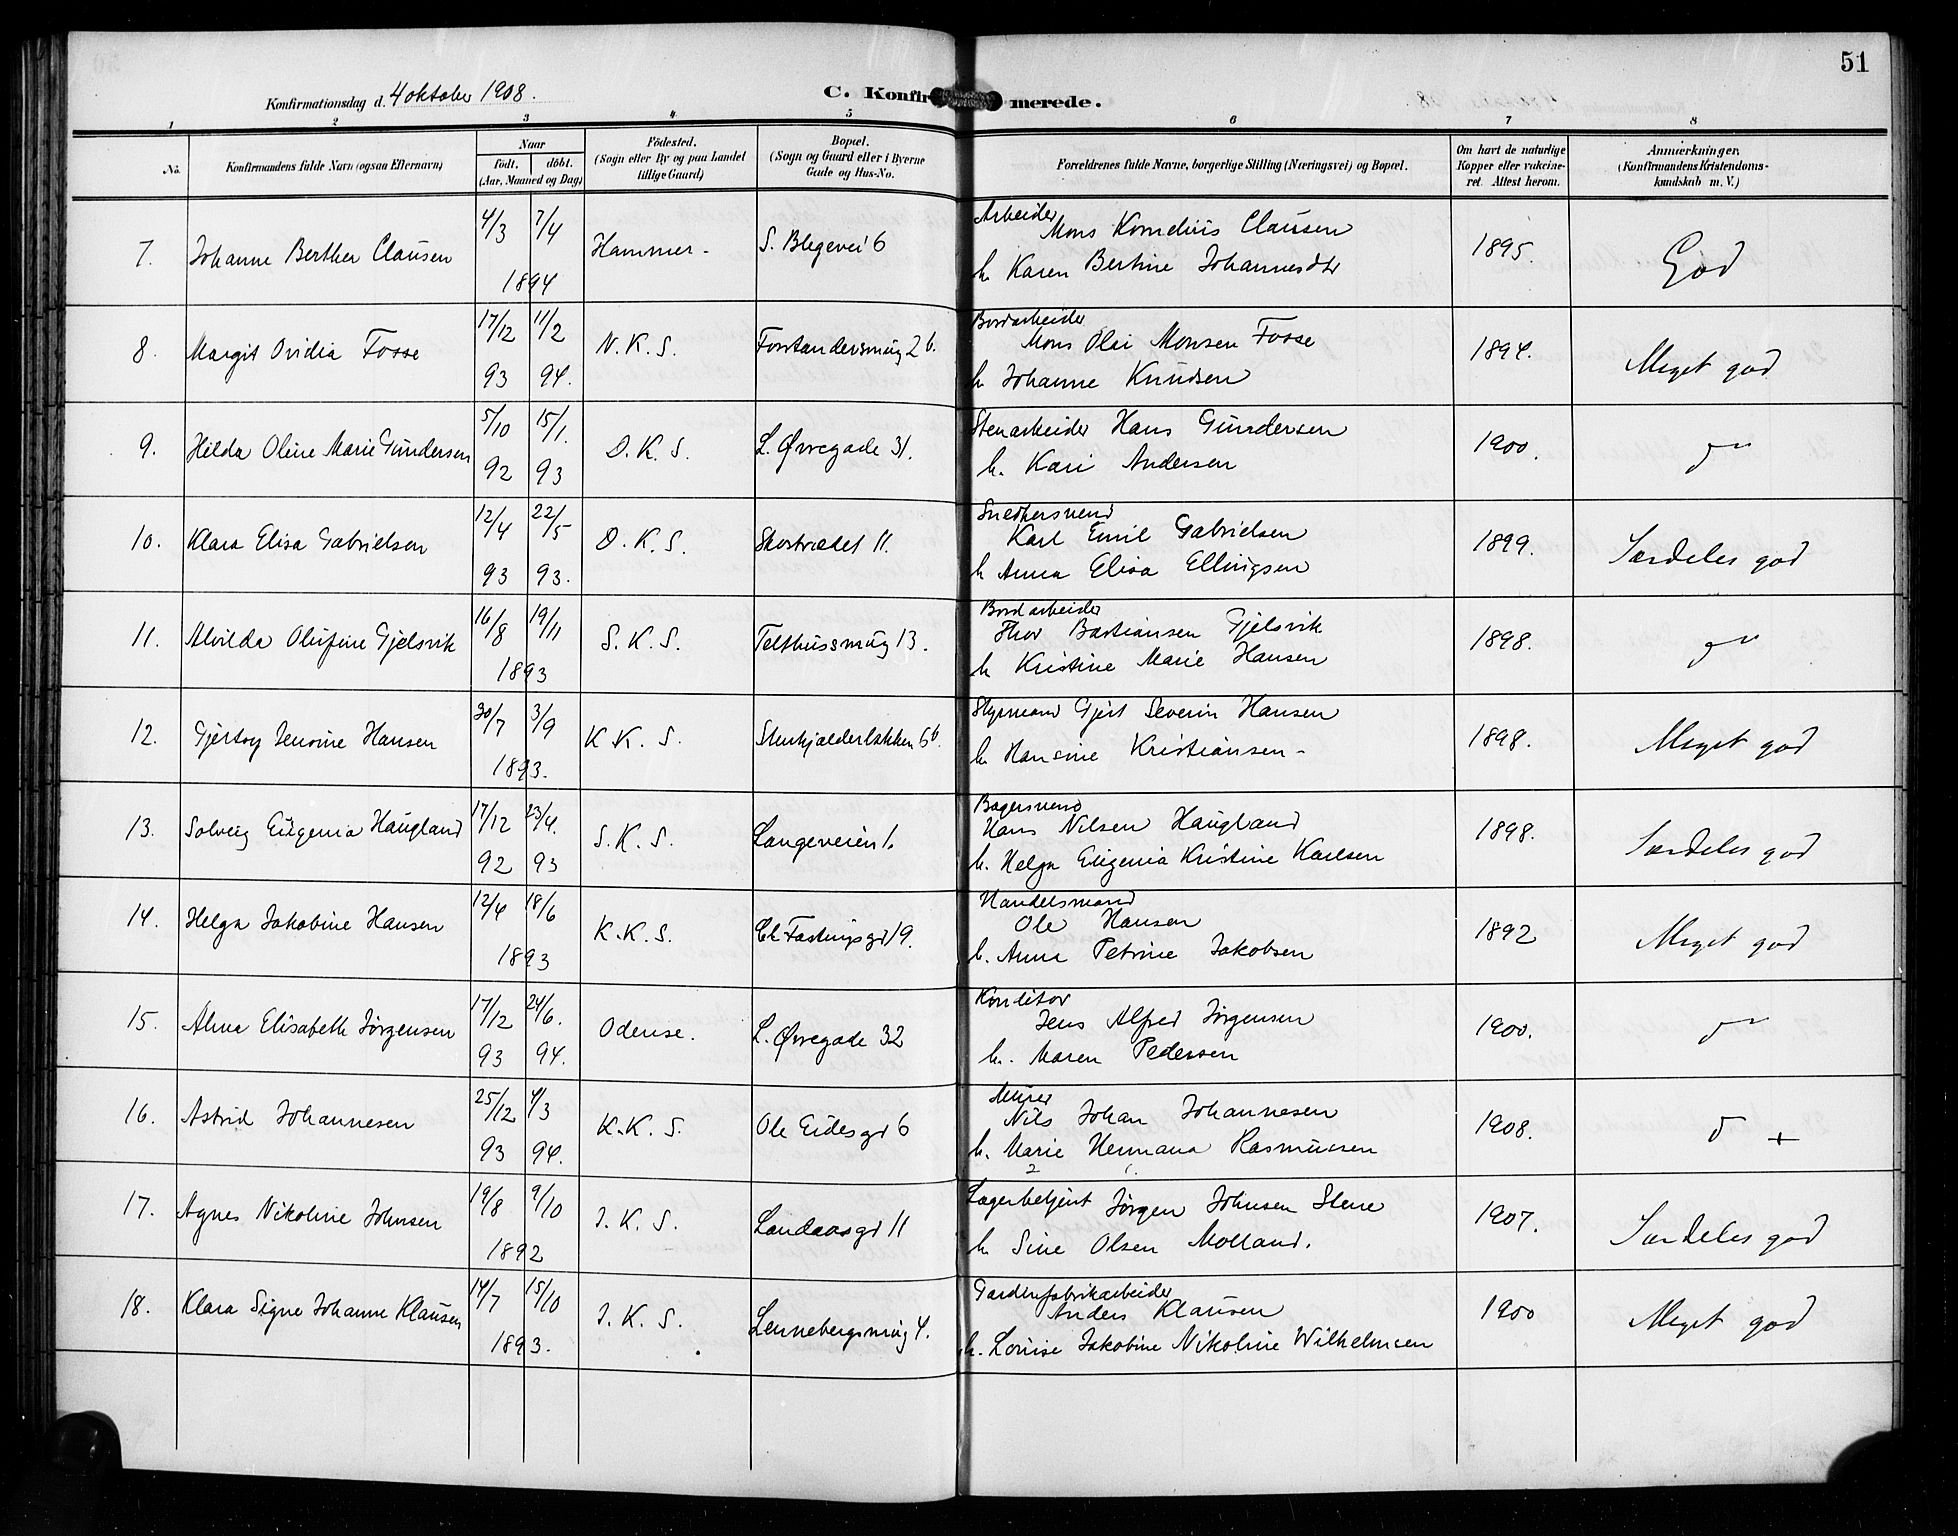 51
Konfirmationsdag d. 4 oktober 1908.
C. Konfirmerede.
1 2 3 4 5 6 7 8
No. Konfirmandens fulde Navn (ogsaa Efternavn) Naar født. døbt. (Aar, Maaned og Dag) Fødested. (Sogn eller By og paa Landet tillige Gaard) Bopæl. (Sogn og Gaard eller i Byerne Gade og Hus-No. Forældrenes fulde Navne, borgerlige Stilling (Næringsvei) og Bopæl. Om havt de naturlige Kopper eller vakcineret. Attest herom. Anmærkninger, (Konfirmandens Kristendomskundskab m. V.)
Arbeider
7. Johanne Berthea Clausen 4/3 7/4 Hammer - S. Blegevei 6 Mons Kornelius Clausen 1895. God
1894 h. Karen Bertine Johannesdtr
Bordarbeider
8. Margit Ovidia Fosse 17/12 11/2 N. K. S. Forstandersmug 2 b. Mons Olai Monsen Fosse 1894. Meget god
93 94. h Johanne Knudsen
9. Hilda Oline Marie Gundersen 5/10 15/1. D. K. S. L. Øvregade 31. Stenarbeider Hans Gundersen 1900. do
92 93 h. Kari Andersen
Snedkersvend
10. Klara Elisa Gabrielsen 12/4 22/5 D. K. S. Skostrædet 11. Karl Emil Gabrielsen 1899. Særdeles god
93 93. h Anna Elisa Ellingsen
Bordarbeider
11. Alvilda Olufine Gjelsvik 16/8 19/11 S. K. S. Telthussmug 13. Thor Bastiansen Gjelsvik 1898. do
1893 h Kristine Marie Hansen
12. Jensine Hansen 30/7 3/9 K K. S. Stenkjelderbakken 6 b. Styrmand Gjert Severin Hansen 1898. Meget god
1893. h. Hansine Kristiansen -
Bagersvend
13. Solveig Eugenia Haugland 17/12 23/4. S. K. S. Langeveien 1. Hans Nilsen Haugland 1898. Særdeles god
92 93 h. Helga Eugenia Kristine Karlsen
Handelsmand
14. Helga Jakobine Hansen 12/4 18/6 K. K. S. Cl. Fastingsgd 19. Ole Hansen 1892 Meget god
1893 h. Anna Petrine Jakobsen
Konditor
15. Alma Elisabeth Jørgensen 17/12 24/6. Odense. L. Øvregade 32 Jens Alfred Jørgensen 1900. do
93 94. h. Maren Pedersen
Murer
16. Astrid Johannesen 25/12 4/3 K. K. S. Ole Eidesgd 6 Nils Johan Johannesen 1908. d +
93 94. h. Marie Hermana Rasmussen
17. Agnes Nikoline Johnsen 19/8 9/10 J. K. S. Landaasgd 11 Lagerbetjent Jørgen Johnsen Stene 1907. Særdeles god
1892 h Sine Olsen Molland.
18. Klara Signe Johanne Klausen 14/7 15/10 J. K. S. Lennebergsmug 4. Anders Klausen 1900 Meget god
1893. h. Louise Jakobine Nikoline Wilhelmsen